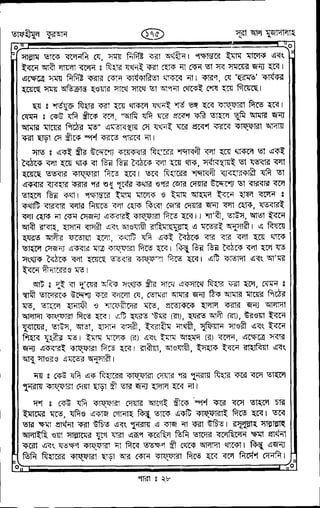 তাফহীমুল কুরআন
১৭৫
সূরা আল মুজাদালাহ
সাল্লাম তাকে বলেননি যে, সময় নির্দিষ্ট করা অর্থহীন। পক্ষান্তরে ইমাম মালেক এবং
ইবনে আবী লায়লা বলেন : যিহার যখনই করা হোক না কেন তা সব সময়ের জন্য হবে।
এক্ষেত্রে সময় নির্দিষ্ট করার কোন কার্যকারিতা থাকবে না। কারণ, যে 'হুরমত' কার্যকর
হয়েছে সময় অতিক্রান্ত হওয়ার সাথে সাথে তা আপনা থেকেই শেষ হয়ে গিয়েছে।
ছয় : শর্তযুক্ত যিহার করা হয়ে থাকলে যখনই শর্ত ভঙ্গ হবে কাফ্ফারা দিতে হবে।
যেমন : কেউ যদি স্ত্রীকে বলে, "আমি যদি ঘরে প্রবেশ করি তাহলে তুমি আমার জন্য
আমার মায়ের পিঠের মত" এমতাবস্থায় সে যখনই ঘরে প্রবেশ করবে কাফ্ফারা আদায়
করা ছাড়া সে স্ত্রীকে স্পর্শ করতে পারবে না।
সাত : একই স্ত্রীর উদ্দেশ্যে কয়েকবার যিহারের শব্দাবলী বলা হয়ে থাকলে তা একই
বৈঠকে বলা হয়ে থাক বা ভিন্ন ভিন্ন বৈঠকে বলা হয়ে থাক, সর্বাবস্থায়ই তা যতবার বলা
হয়েছে ততবার কাফ্ফারা দিতে হবে। তবে যিহারের শব্দাবলী ব্যবহারকারী যদি তা
একবার ব্যবহার করার পর শুধু পূর্বের কথার ওপর জোর দেয়ার উদ্দেশ্যে তা বারবার বলে
তাহলে ভিন্ন কথা। পক্ষান্তরে ইমাম মালেক ও ইমাম আহমদ ইবনে হাম্বল বলেন :
কথাটি বারবার বলার নিয়তে বলা হোক কিংবা জোর দেয়ার জন্য বলা হোক, যতবারই
বলা হোক না কেন সেজন্য একবারই কাফ্ফারা দিতে হবে। শা'বী, তাউস, আতা ইবনে
আবী রাবাহ, হাসান বাসরী এবং আওযায়ী রাহিমাহুমুল্লাহু এ মতেরই অনুসারী। এ বিষয়ে
হযরত আলীর ফতোয়া হলো, কথাটি যদি একই বৈঠকে বার বার বলা হয়ে থাকে
তাহলে সেজন্য একবার মাত্র কাফ্ফারা দিতে হবে। কিন্তু ভিন্ন ভিন্ন বৈঠকে বলা হলে যত
সংখ্যক বৈঠকে বলা হয়েছে ততবার কাফ্ফারা দিতে হবে। এটি কাতাদা এবং আ'মর
ইবনে দীনারেরও মত।
আট : দুই বা দু'য়ের অধিক সংখ্যক স্ত্রীর সাথে একসাথে যিহার করা হলে, যেমন :
স্বামী তাদেরকে উদ্দেশ্য করে বললো যে, তোমরা আমার জন্য ঠিক আমার মায়ের পিঠের
মত, তাহলে হানাফী ও শাফেয়ীদের মতে, প্রত্যেককে হালাল করার জন্য আলাদা
আলাদা কাফ্ফারা দিতে হবে। এটি হযরত 'উমর (রা), হযরত আলী (রা), উরওয়া ইবনে
যুবায়ের, তাউস, আতা, হাসান বাসরী, ইবরাহীম নাখয়ী, সুফিয়ান সাওরী এবং ইবনে
শিহাব যুহরীর মত। ইমাম মালেক (র) এবং ইমাম আহমদ (র) বলেন, এক্ষেত্রে সবার
জন্য একবারই কাফ্ফারা দিতে হবে। রাবীয়া, আওযায়ী, ইসহাক ইবনে রাহবিয়া এবং
আবু সাওরও এমতের অনুসারী।
নয় : কেউ যদি এক যিহারের কাফ্ফারা দেয়ার পর পুনরায় যিহার করে বসে তাহলে
পুনরায় কাফ্ফারা দেয়া ছাড়া স্ত্রী তার জন্য হালাল হবে না।
দশ : কেউ যদি কাফ্ফারা দেয়ার আগেই স্ত্রীকে স্পর্শ করে বসে তাহলে চার
ইমামের মতে, যদিও একাজ গোনাহ কিন্তু তাকে একটি কাফ্ফারাই দিতে হবে। তবে
তার ক্ষমা প্রার্থনা করা উচিত এবং পুনরায় এ কাজ না করা উচিত। রসূলুল্লাহ সাল্লাল্লাহু
আলাইহি ওয়া সাল্লামের যুগে যারা এরূপ করেছিল তিনি তাদের বলেছিলেন ক্ষমা প্রার্থনা
করো এবং যতক্ষণ কাফ্ফারা না দিবে ততক্ষণ স্ত্রী থেকে আলাদা থাকো। কিন্তু এজন্য
তিনি যিহারের কাফ্ফারা ছাড়া আর কোন কাফ্ফারা দিতে হবে বলে নির্দেশ দেননি।
পারা : ২৮